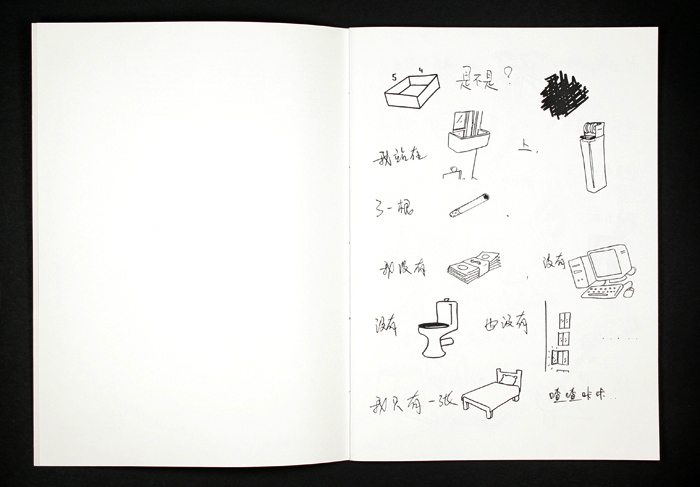 5 4 是不是?
我站在 上.
了一根 .
我没有 , 没有
没有 也没有 ......
我只有一张 喳喳咔咔...